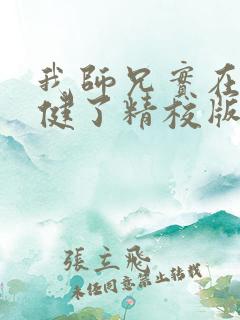 我師兄實在
健了精校版
張立飛
未經同意禁止轉載